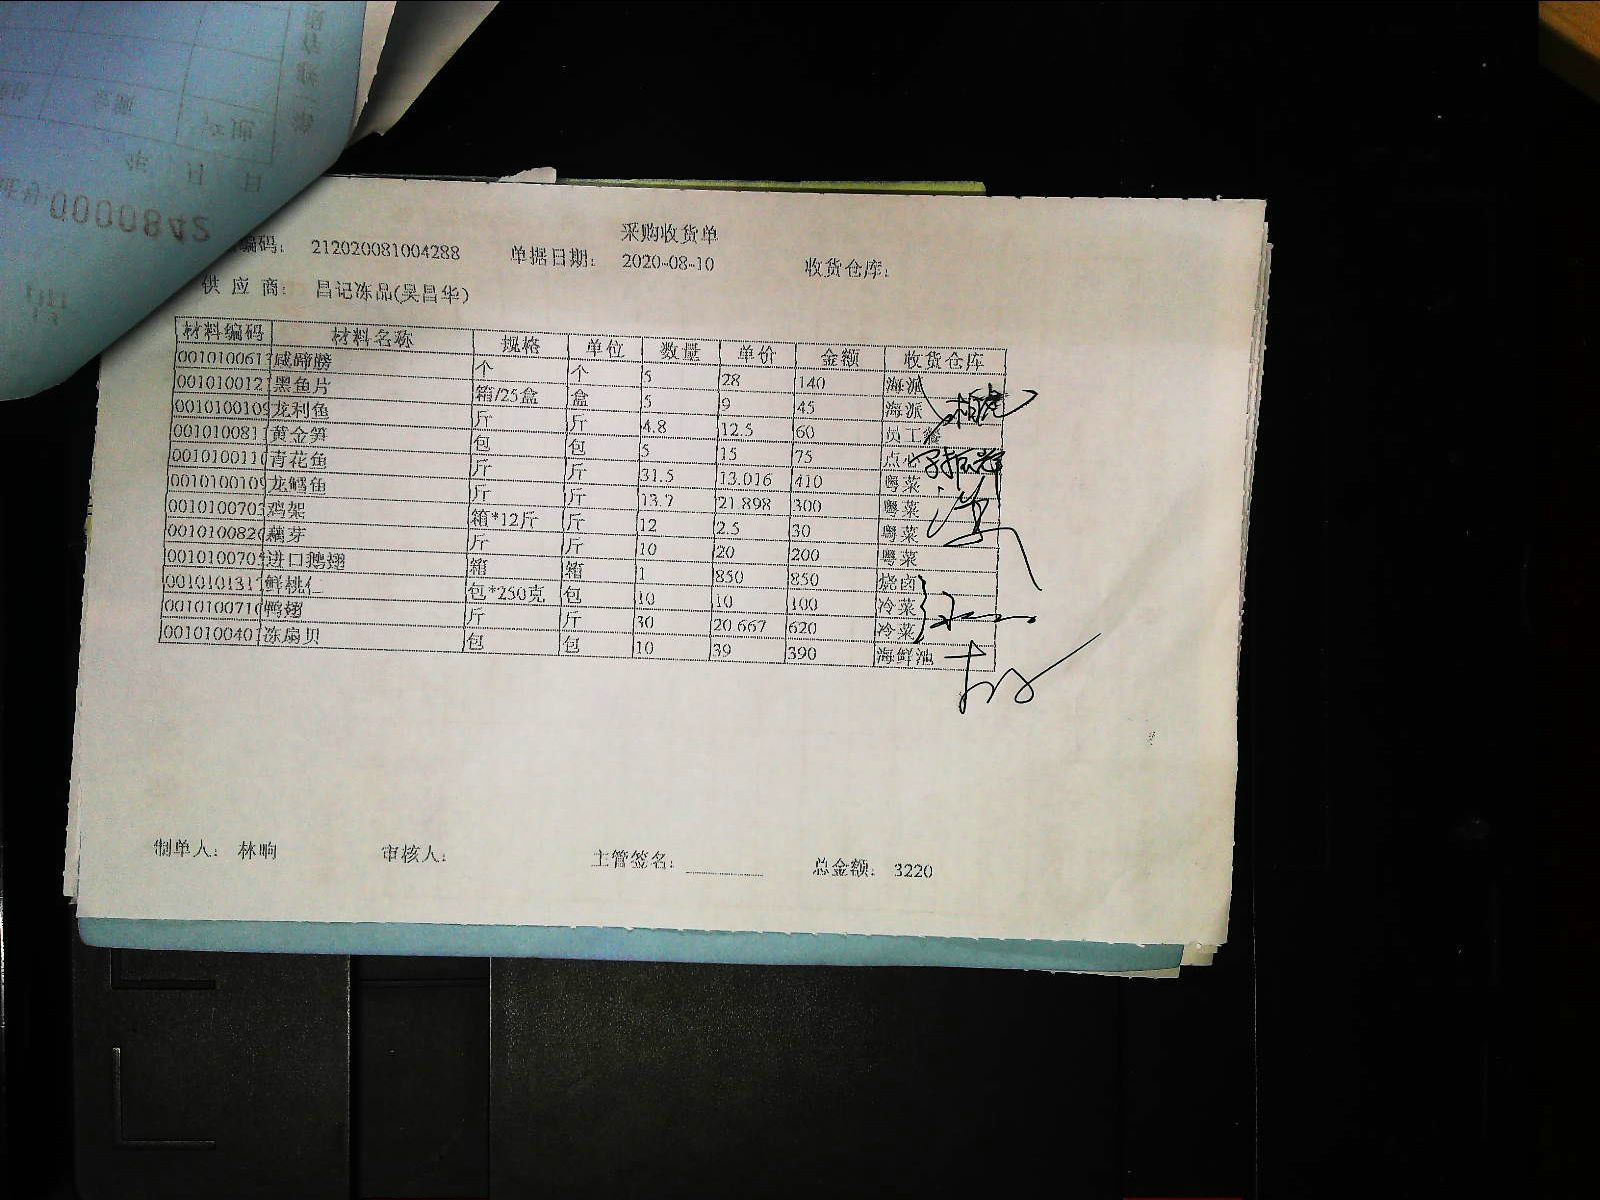 0000842
采购收货单
编码: 212020081004288 单据日期: 2020-08-10 收货仓库:
供 应 商: 昌记冻品(吴昌华)
材料编码 材料名称 规格 单位 数量 单价 金额 收货仓库
001010061 咸蹄膀 个 个 5 28 140 海派
001010012 黑鱼片 箱/25盒 盒 5 9 45 海派
001010010 龙利鱼 斤 斤 4.8 12.5 60 员工餐
001010081 黄金笋 包 包 5 15 75 点心
001010011 青花鱼 斤 斤 31.5 13.016 410 粤菜
001010010 龙鳕鱼 斤 斤 13.7 21.898 300 粤菜
001010070 鸡架 箱*12斤 斤 12 2.5 30 粤菜
001010082 藕芽 斤 斤 10 20 200 粤菜
001010070 进口鹅翅 箱 箱 1 850 850 烧卤
001010131 鲜桃仁 包*250克 包 10 10 100 冷菜
001010071 鸭翅 斤 斤 30 20.667 620 冷菜
001010040 冻扇贝 包 包 10 39 390 海鲜池
制单人: 林响 审核人: 主管签名: 总金额: 3220